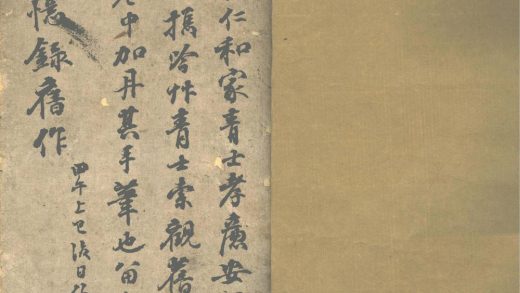 仁和家青士孝廉安
攜吟艸青士索觀舊
中加丹其手筆也留
憶錄舊作
午上巳後日